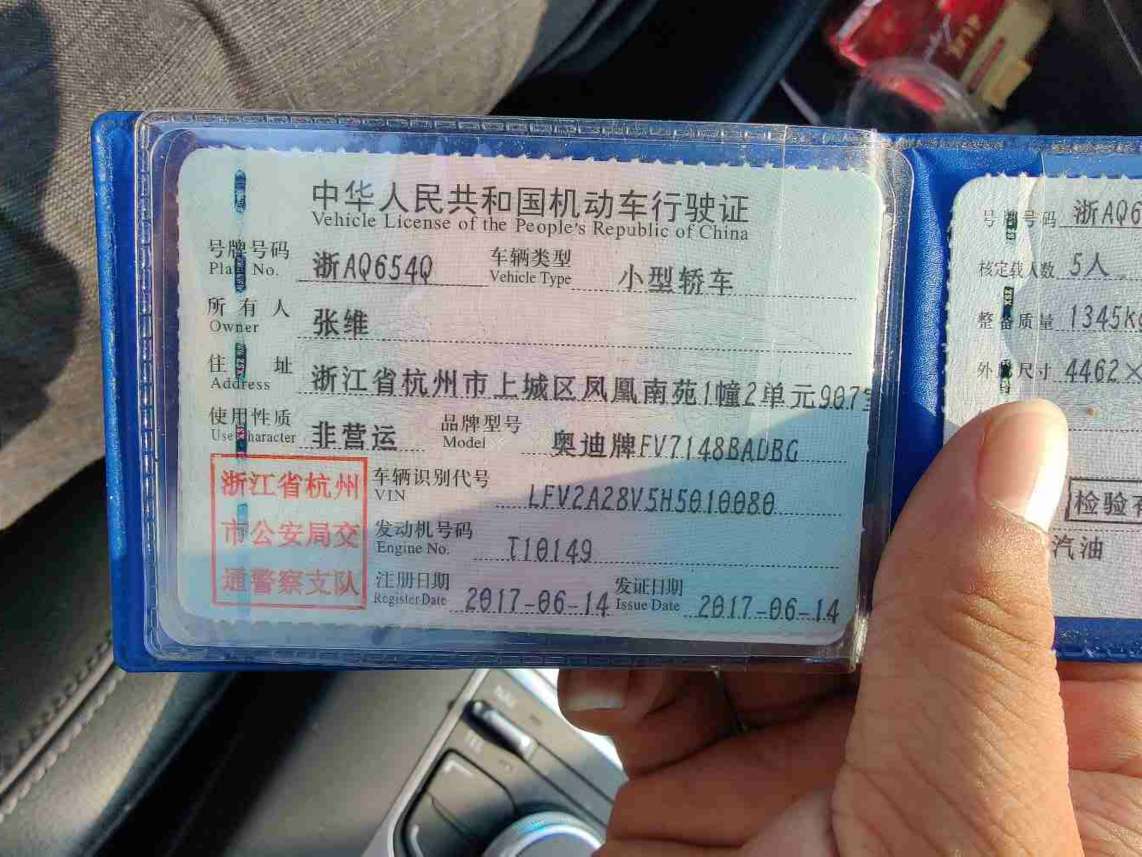 中华人民共和国机动车行驶证
Vehicle License of the People's Republic of China
号牌号码 浙AQ654Q 车辆类型 小型轿车
Plate No. Vehicle Type
所有人 张维
Owner
住址 浙江省杭州市上城区凤凰南苑1幢2单元907室
Address
使用性质 非营运 品牌型号 奥迪牌FV7148BADBG
Use Character Model
浙江省杭州
市公安局交
通警察支队
车辆识别代号 LFV2A28V5H5010080
VIN
发动机号码 T10149
Engine No.
注册日期 2017-06-14 发证日期 2017-06-14
Register Date Issue Date
号牌号码 浙AQ6
核定载人数 5人
整备质量 1345K
外廓尺寸 4462×
检验
汽油